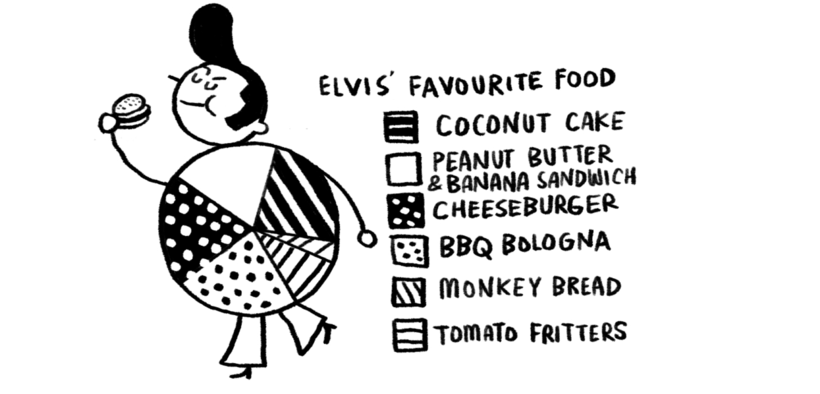 ELVIS' FAVOURITE FOOD
COCONUT CAKE
PEANUT BUTTER
& BANANA SANDWICH
CHEESEBURGER
BBQ BOLOGNA
MONKEY BREAD
TOMATO FRITTERS